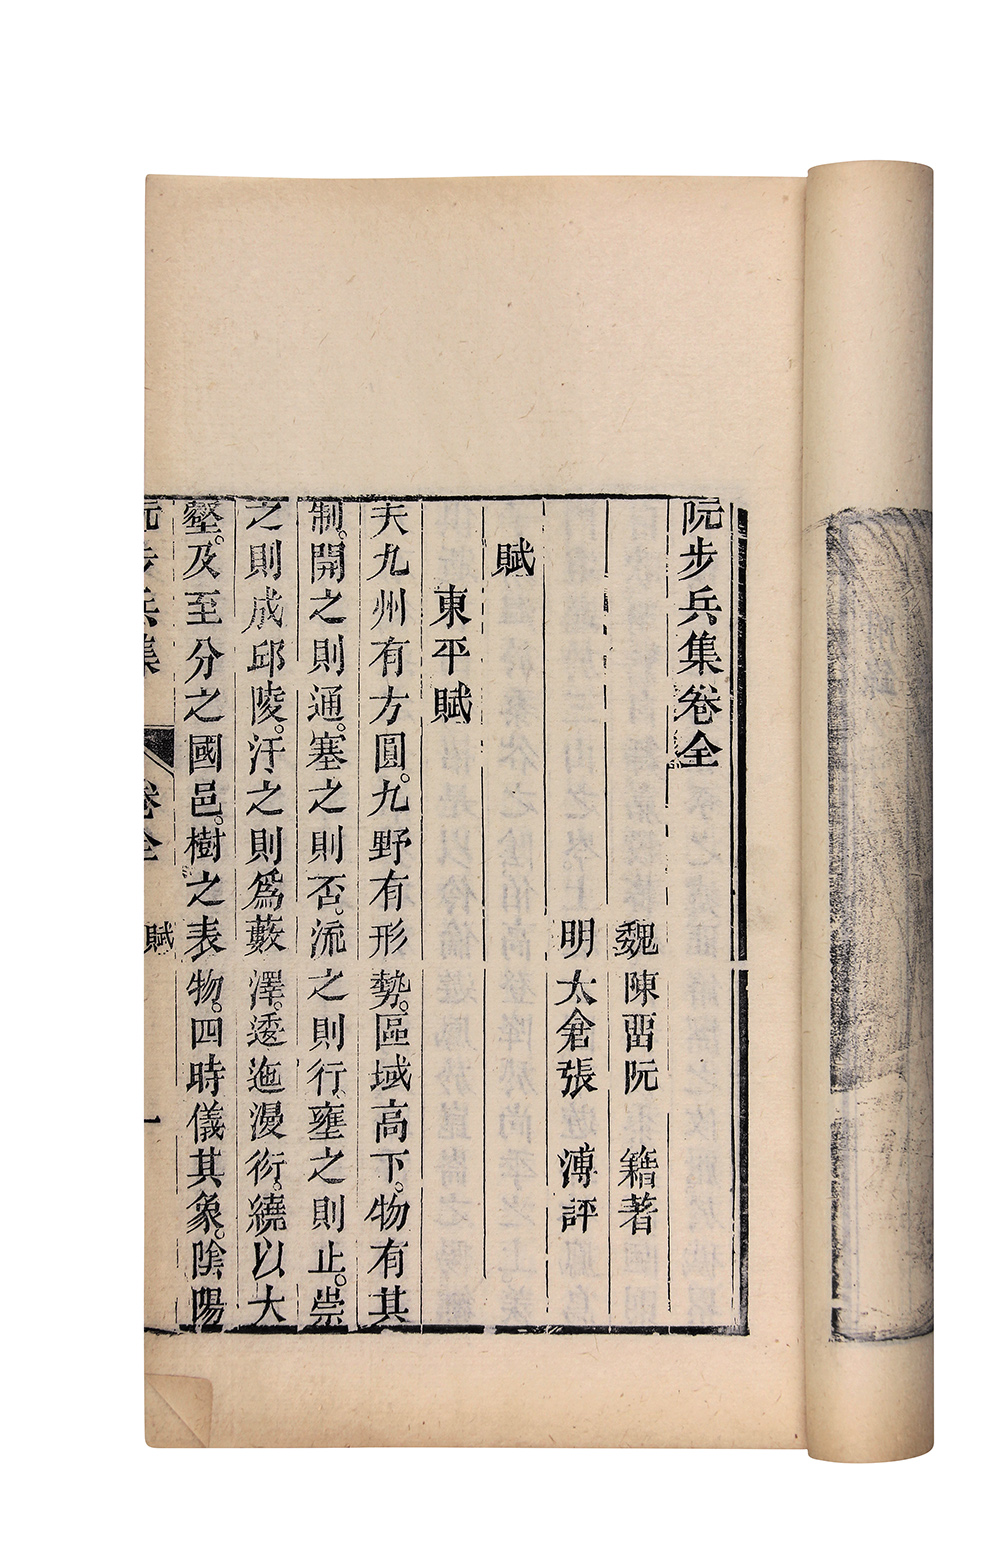 阮步兵集卷全
魏陳畱阮籍著
明太倉張溥評
賦
東平賦
夫九州有方圓。九野有形勢。區域高下。物有其
制。開之則通。塞之則否。流之則行。壅之則止。崇
之則成邱陵。汙之則爲藪澤。逶迤漫衍。繞以大
壑。及至分之國邑。樹之表物。四時儀其象。陰陽
阮步兵集 卷全 賦 一